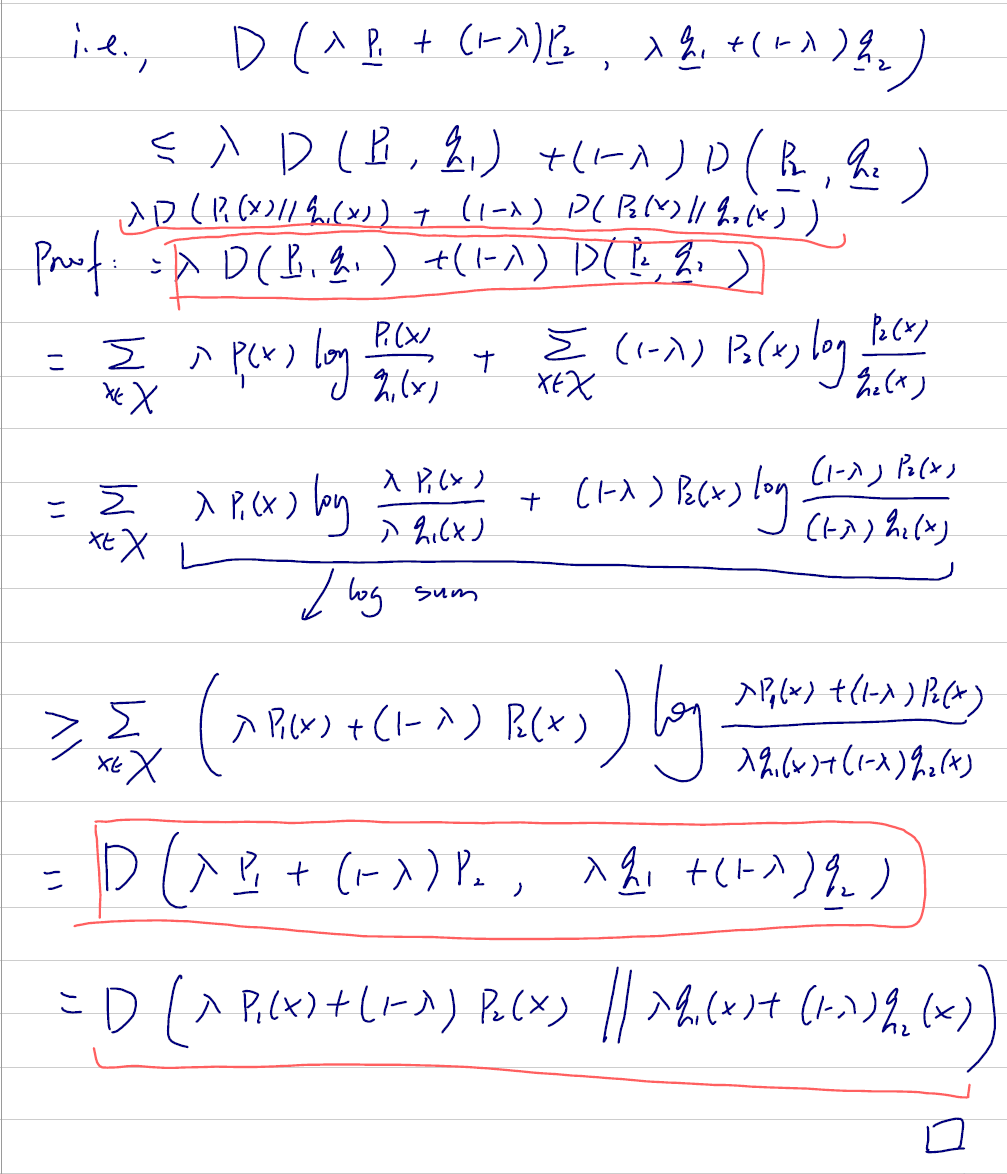 i.e., D ( λ p̲₁ + (1-λ) p̲₂ , λ q̲₁ + (1-λ) q̲₂ )
≤ λ D ( p̲₁ , q̲₁ ) + (1-λ) D ( p̲₂ , q̲₂ )
λ D ( p₁(x) // q₁(x) ) + (1-λ) D( p₂(x) // q₂(x) )
Proof: = λ D ( p̲₁, q̲₁ ) + (1-λ) D( p̲₂, q̲₂ )
= Σ_{x∈X} λ p₁(x) log p₁(x)/q₁(x) + Σ_{x∈X} (1-λ) p₂(x) log p₂(x)/q₂(x)
= Σ_{x∈X} λ p₁(x) log λ p₁(x)/λ q₁(x) + (1-λ) p₂(x) log (1-λ) p₂(x)/(1-λ) q₂(x)
↙ log sum
≥ Σ_{x∈X} ( λ p₁(x) + (1-λ) p₂(x) ) log λp₁(x) + (1-λ) p₂(x)/λq₁(x) + (1-λ) q₂(x)
= D ( λ p̲₁ + (1-λ) p₂ , λ q̲₁ + (1-λ) q̲₂ )
= D ( λ p₁(x) + (1-λ) p₂(x) // λ q₁(x) + (1-λ) q₂(x) )
□